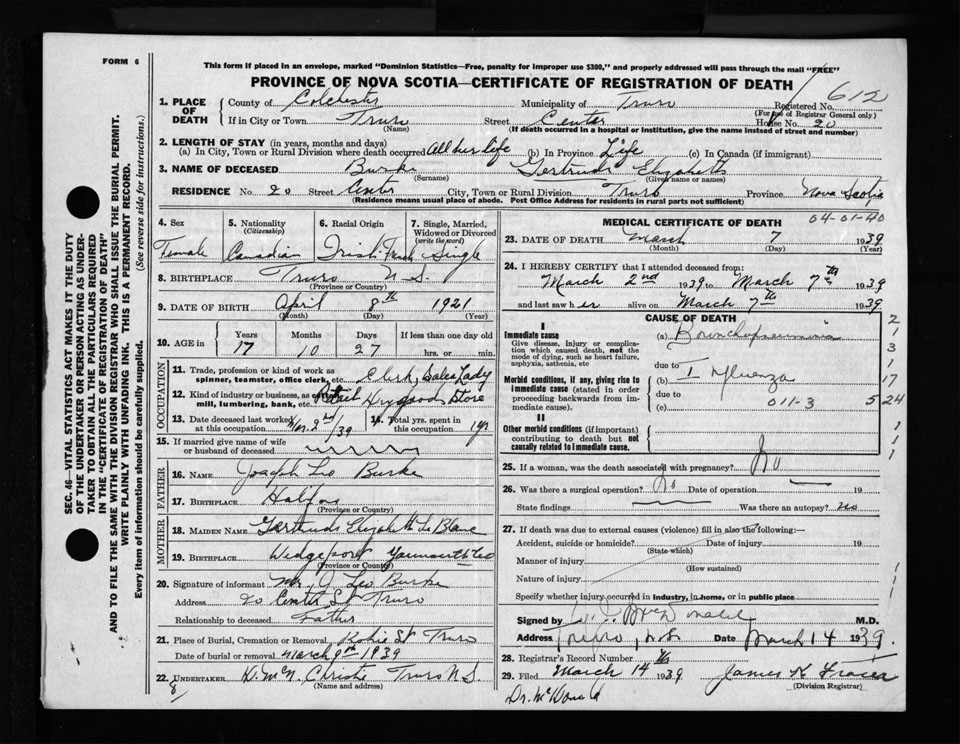 FORM 6
This form if placed in an envelope, marked "Dominion Statistics—Free, penalty for improper use $300," and properly addressed will pass through the mail "FREE"
PROVINCE OF NOVA SCOTIA—CERTIFICATE OF REGISTRATION OF DEATH
612
SEC. 46—VITAL STATISTICS ACT MAKES IT THE DUTY
OF THE UNDERTAKER OR PERSON ACTING AS UNDER-
TAKER TO OBTAIN ALL THE PARTICULARS REQUIRED
IN THE "CERTIFICATE OF REGISTRATION OF DEATH"
AND TO FILE THE SAME WITH THE DIVISION REGISTRAR WHO SHALL ISSUE THE BURIAL PERMIT.
WRITE PLAINLY WITH UNFADING INK. THIS IS A PERMANENT RECORD.
Every item of information should be carefully supplied. (See reverse side for instructions.)
1. PLACE OF DEATH
County of Colchester Municipality of Truro Registered No.
(For use of Registrar General only)
If in City or Town Truro Street Center House No. 20
(Name) (If death occurred in a hospital or institution, give the name instead of street and number)
2. LENGTH OF STAY (in years, months and days)
(a) In City, Town or Rural Division where death occurred All her life (b) In Province Life (c) In Canada (if immigrant)
3. NAME OF DECEASED Burke Gertrude Elizabeth
(Surname) (Given name or names)
RESIDENCE No 20 Street Center City, Town or Rural Division Truro Province Nova Scotia
(Residence means usual place of abode. Post Office Address for residents in rural parts not sufficient)
4. Sex 5. Nationality (Citizenship) 6. Racial Origin 7. Single, Married, Widowed or Divorced (write the word)
Female Canadian Irish French Single
8. BIRTHPLACE Truro N S.
(Province or Country)
9. DATE OF BIRTH April 8th 1921
(Month) (Day) (Year)
10. AGE in Years Months Days If less than one day old
17 10 27 hrs. or min.
OCCUPATION
11. Trade, profession or kind of work as
spinner, teamster, office clerk, etc. Clerk, Sales Lady
12. Kind of industry or business, as cotton
mill, lumbering, bank, etc. Retail Drygoods Store
13. Date deceased last worked at this occupation Mar. 2nd /39 14. Total yrs. spent in this occupation 1 yr
15. If married give name of wife
or husband of deceased
FATHER
16. NAME Joseph Leo Burke
17. BIRTHPLACE Halifax
MOTHER
18. MAIDEN NAME Gertrude Elizabeth Le Blanc
19. BIRTHPLACE Wedgeport Yarmouth Co
(Province or Country)
20. Signature of informant Mr J Leo Burke
Address 20 Center St Truro
Relationship to deceased Father
21. Place of Burial, Cremation or Removal Robie St Truro
Date of burial or removal March 9th 1939
22. UNDERTAKER D. McN Christie Truro N S.
(Name and address)
8
MEDICAL CERTIFICATE OF DEATH
04-01-40
23. DATE OF DEATH March 7 1939
(Month) (Day) (Year)
24. I HEREBY CERTIFY that I attended deceased from:
March 2nd 1939 to March 7th 1939
and last saw her alive on March 7th 1939
CAUSE OF DEATH
I
Immediate cause (a) Bronchopneumonia
Give disease, injury or complication which caused death, not the mode of dying, such as heart failure, asphyxia, asthenia, etc
due to
Morbid conditions, if any, giving rise to immediate cause (stated in order proceeding backwards from immediate cause).
(b) Influenza
due to
(c) 011-3
2
1
3
1
17
5 24
1
1
1
II
Other morbid conditions (if important) contributing to death but not causally related to immediate cause.
25. If a woman, was the death associated with pregnancy? No
26. Was there a surgical operation? No Date of operation 19
State findings Was there an autopsy? no
27. If death was due to external causes (violence) fill in also the following:—
Accident, suicide or homicide? Date of injury 19
(State which)
Manner of injury
(How sustained)
Nature of injury
Specify whether injury occurred in industry, in home, or in public place
Signed by McDonald M.D.
Address Truro, N.S. Date March 14 1939.
28. Registrar's Record Number
29. Filed March 14th 1939 James K Fraser
(Division Registrar)
Dr. McDonald